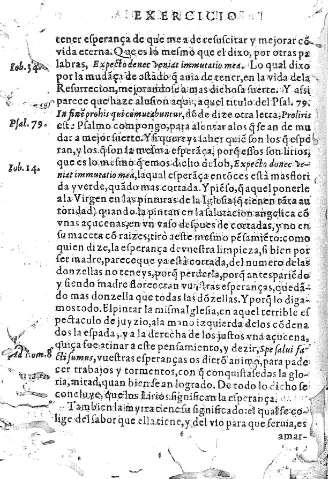 EXERCICIO
tener esperança de que me a de resuscitar y mejorar cō
vida eterna. Que es lo mesmo que el dixo, por otras pa
Iob. 14.
labras, Expecto donec veniat immutatio mea. Lo qual dixo
por la mudāça de estado q̄ auia de tener, en la vida de la
Resurrecion, mejorandose a mas dichosa suerte. Y assi
parece que haze alusion aqui, aquel titulo del Psal. 79.
In finē pro his qui cōmutabuntur, dōde dize otra letra, Pro liriis
Psal. 79.
este Psalmo compongo, para alentar a los q̄ se an de mu
dar a mejor suerte. Y si quereys saber quiē son los q̄ esp
ran, y los q̄ son la mesma esperāça; porq̄ essos son lirios,
que es lo mesmo q̄ emos dicho de Iob, Expecto donec ve-
Iob. 14.
niat immutatio mea, la qual esperāça entōces està mas flori
da y verde, quādo mas cortada. Y piēso, q̄ aquel ponerle
a la Virgen en las pinturas de la Iglesia (q̄ tienen grā au
toridad) quando la pintan en la salutacion angelica cō
vnas açucenas, en vn vaso despues de cortadas, y no en
su maceta cō raizes, tirò a este mesmo pēsamiēto: como
quien dize, la esperança de vuestra limpieza, si bien por
ser madre, parece que ya està cortada, del numero de las
donzellas no teneys, porq̄ perderla, porq̄ antes pariēdo
y siendo madre floreceran vuestras esperanças, quedā-
do mas donzella que todas las dōzellas. Y porq̄ lo diga-
mos todo. El pintar la misma Iglesia, en aquel terrible es
pectaculo de juyzio, a la mano izquierda de los cōdena
dos la espada, y a la derecha de los justos vna açucena,
quiça fue atinar a este pensamiento, y dezir, Spe salui fa-
Ad Rom. 8
cti sumus, vuestras esperanças os dierō animo, para pade
cer trabajos y tormentos, con q̄ conquistasedas la glo-
ria, mirad, quan bien se an logrado. De todo lo dicho se
concluye, que los Lirios significan la esperança.
Tambien la myrra tiene su significado: el qual se co-
lige del sabor que ella tiene, y del vio para que seruia, es
amar-